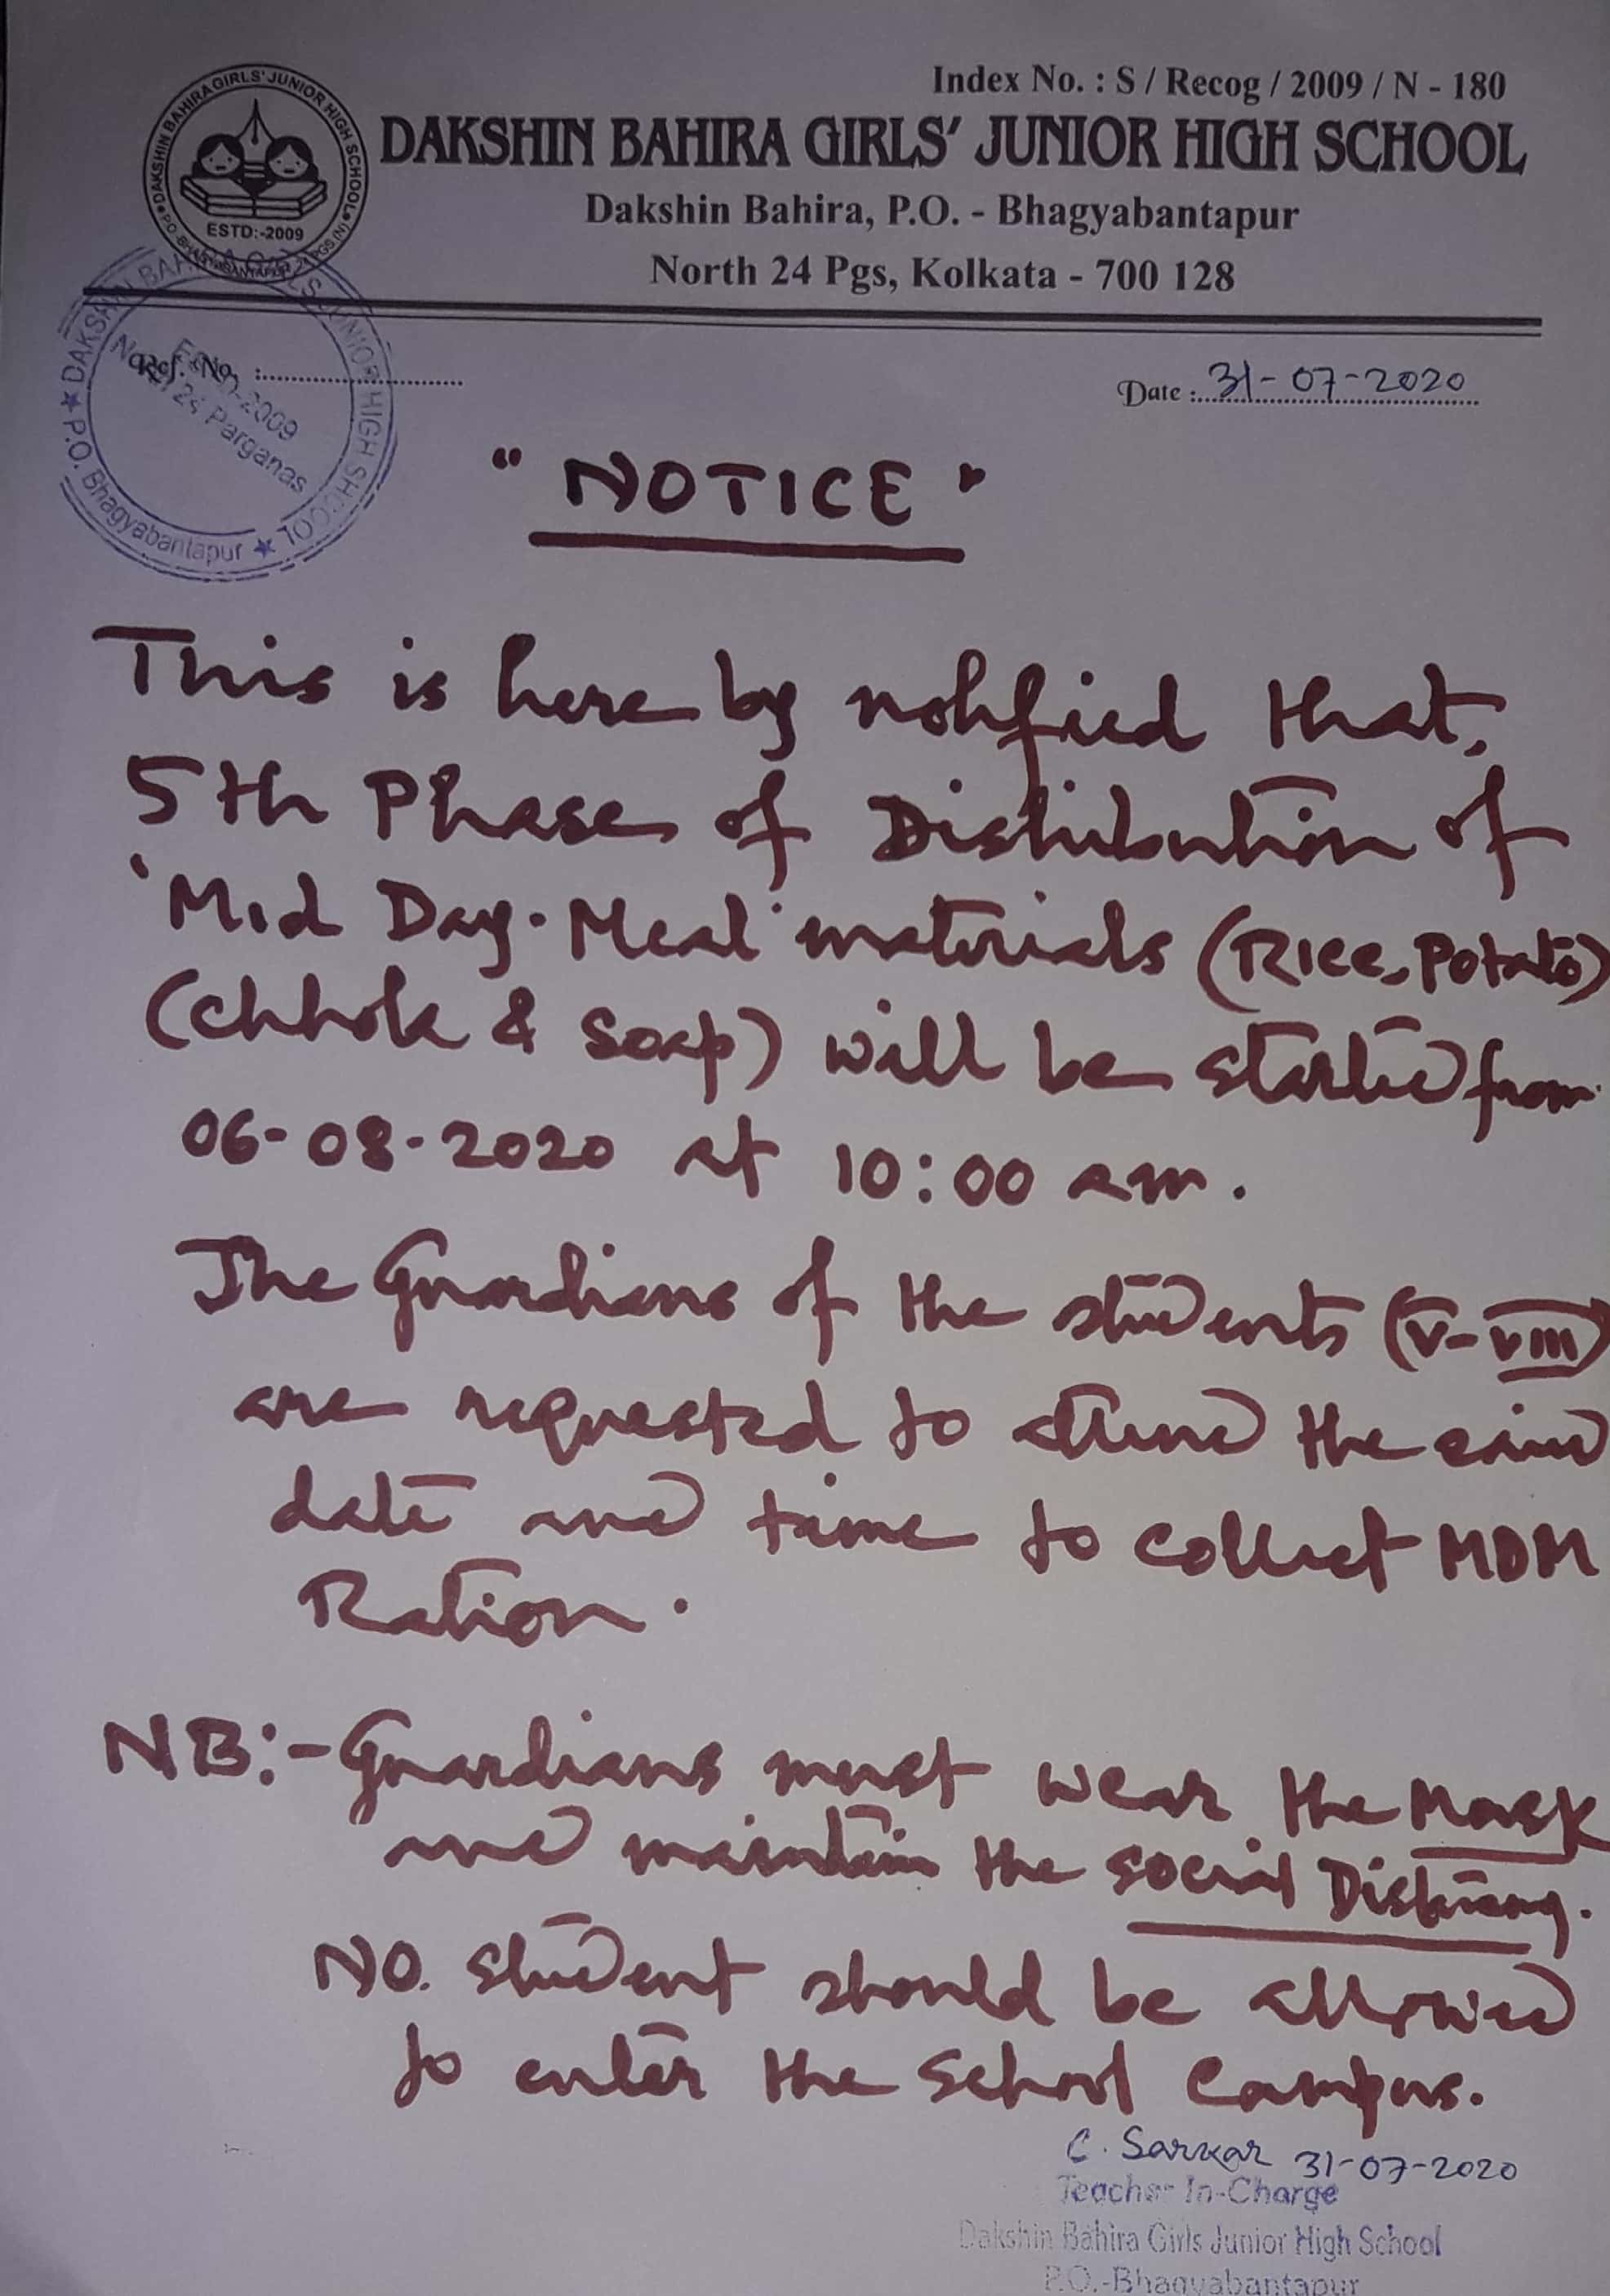 Index No. : S / Recog / 2009 / N - 180
DAKSHIN BAHIRA GIRLS' JUNIOR HIGH SCHOOL
Dakshin Bahira, P.O. - Bhagyabantapur
North 24 Pgs, Kolkata - 700 128
DAKSHIN BAHIRA GIRLS' JUNIOR HIGH SCHOOL
ESTD:-2009
Ref. No. :
Date : 31-07-2020
DAKSHIN BAHIRA GIRLS JUNIOR HIGH SHCOOL
Estd-2009
North 24 Parganas
P.O. Bhagyabantapur
" NOTICE "
This is here by notified that,
5th Phase of Distribution of
'Mid Day-Meal' materials (Rice, Potato)
(Chhola & Soap) will be started from
06-08-2020 at 10:00 am.
The Guardians of the students (V-VIII)
are requested to attend the said
date and time to collect MDM
Ration.
NB:- Guardians must wear the Mask
and maintain the social Distancing.
NO. student should be allowed
to enter the School Campus.
C. Sarkar 31-07-2020
Teacher In-Charge
Dakshin Bahira Girls Junior High School
P.O.-Bhagyabantapur